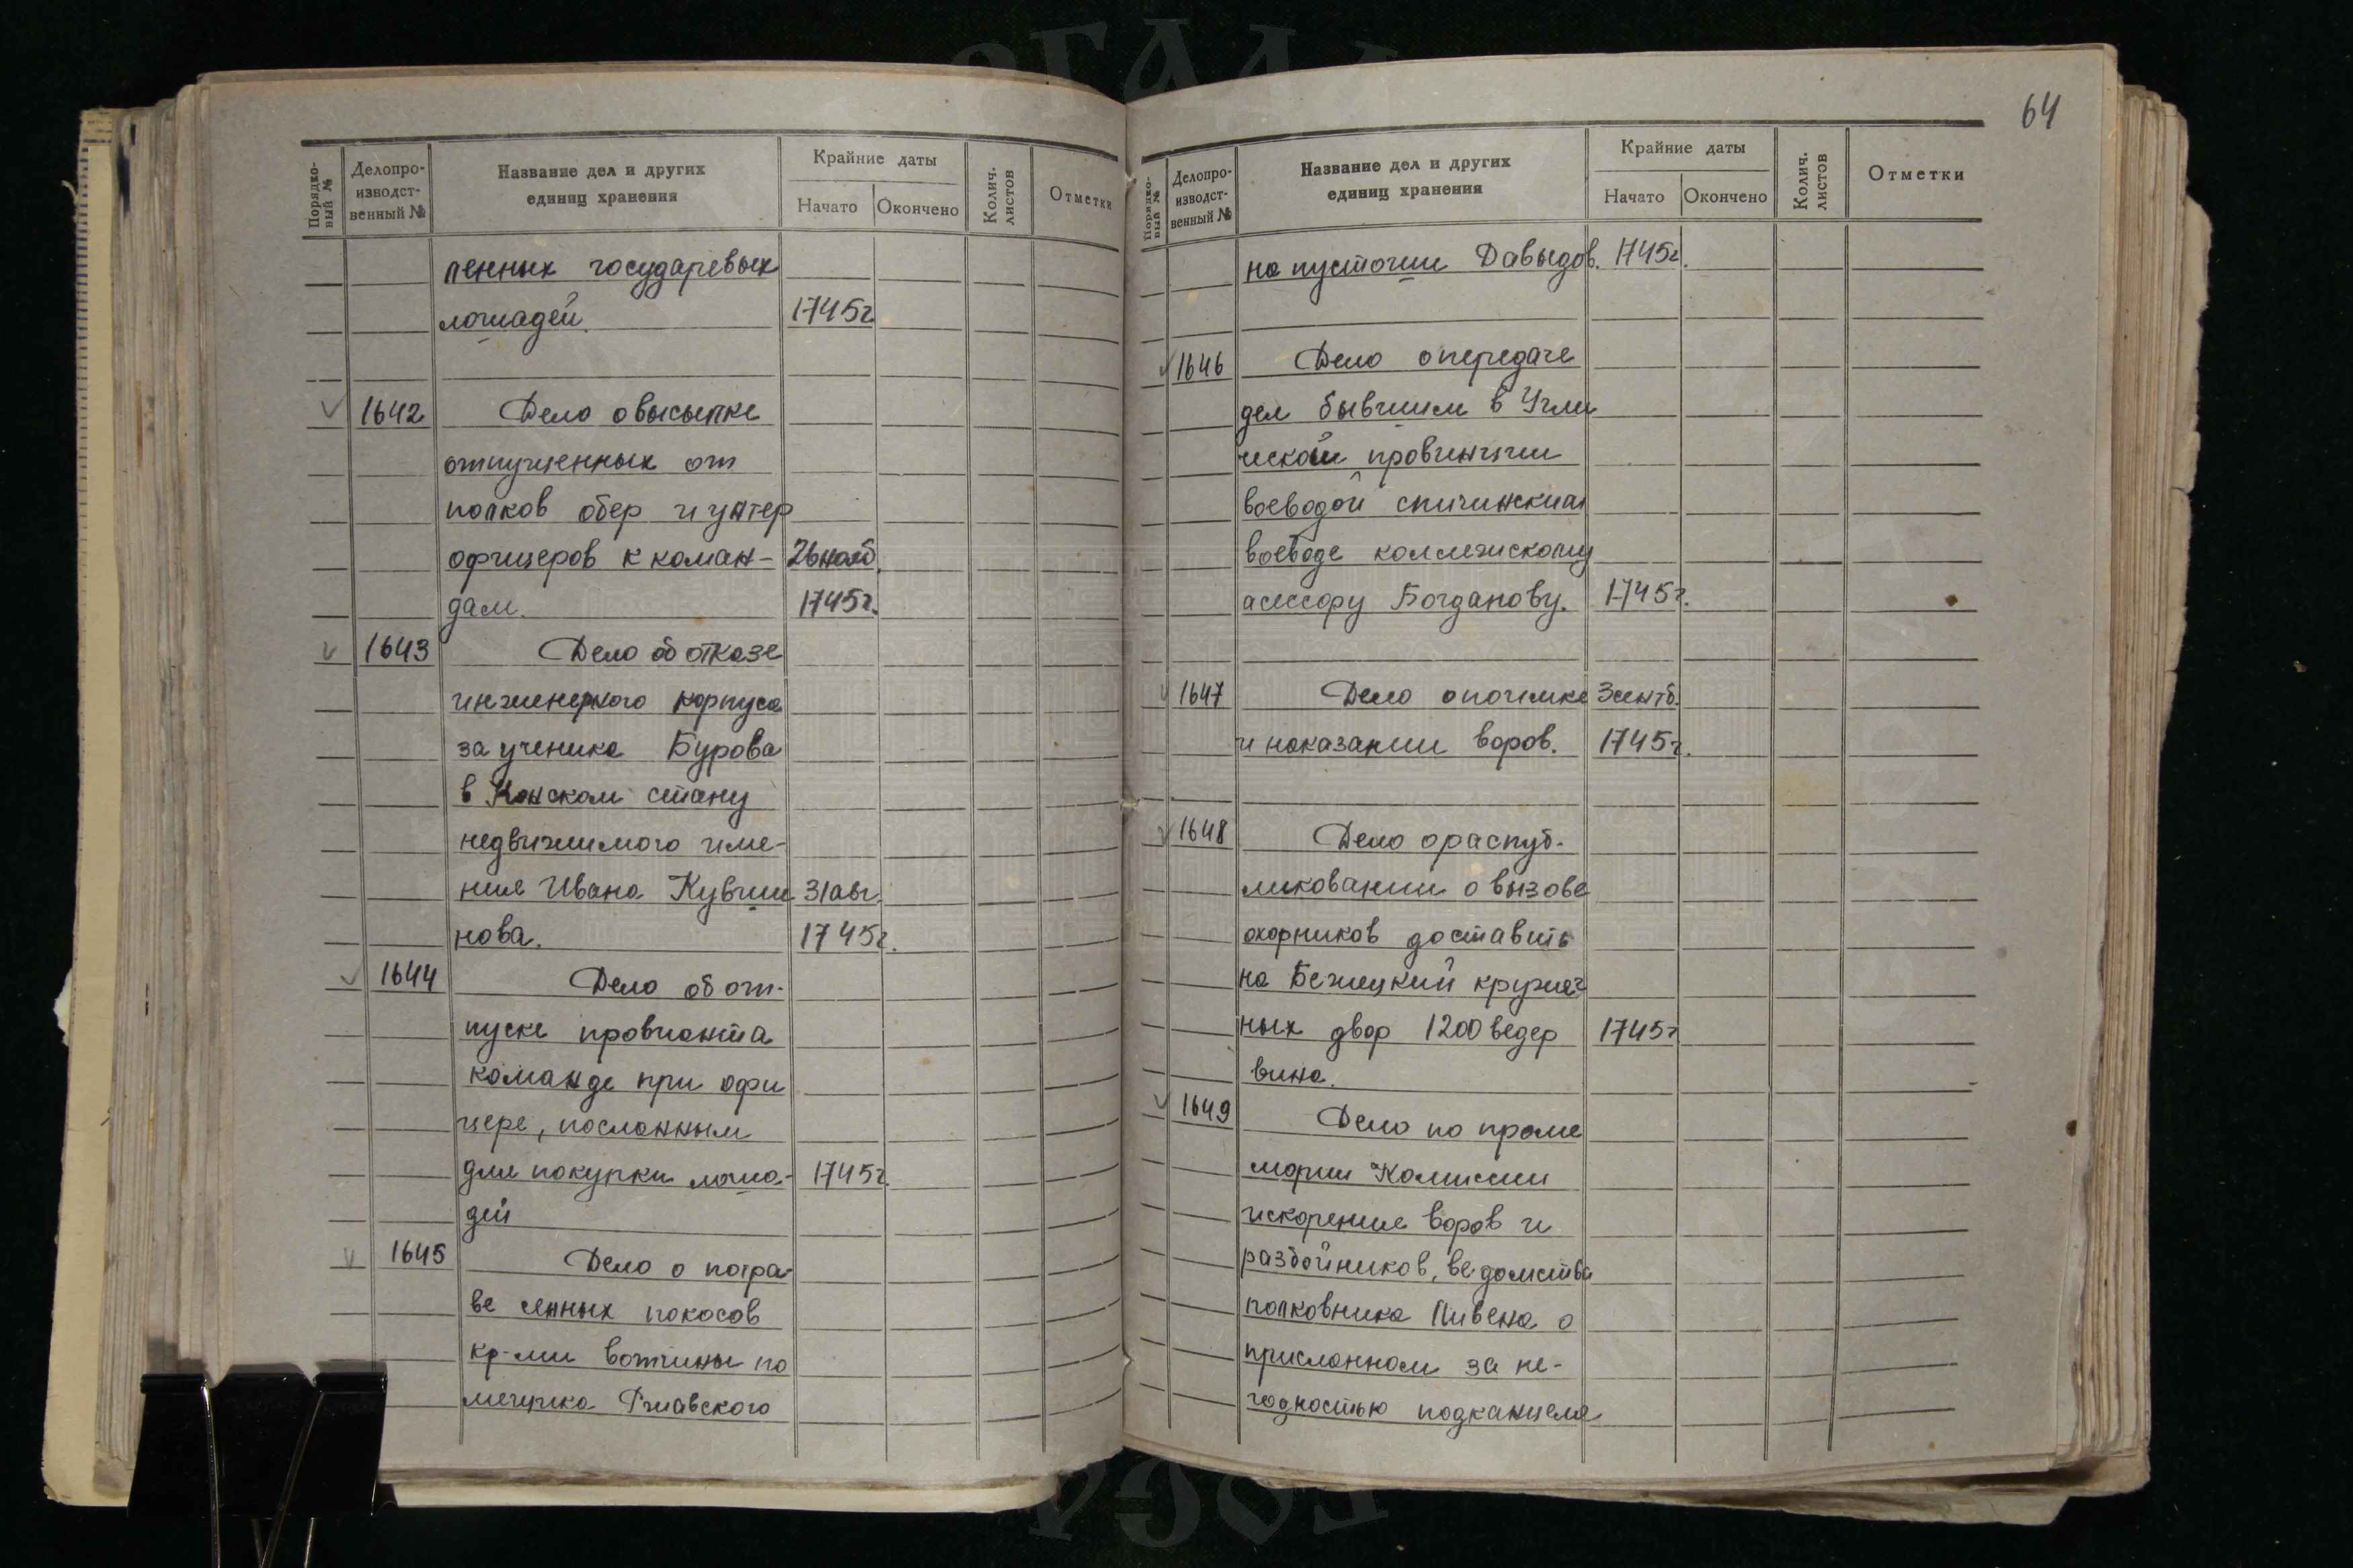 Порядко-
вый №
Делопро-
изводст-
венный №
Название дел и других
единиц хранения
Крайние даты
Начато
Окончено
Колич.
листов
Отметки
ленных государевых
лошадей. 1745г
1642 Дело о высылке
отпущенных от
полков обер и унтер
офицеров к коман-
26 нояб.
дам. 1745г.
1643 Дело об отказе
инженерного корпуса
за ученика Бурова
в Конском стану
недвижимого име-
ния Ивана Кувши 31 авг.
нова. 1745г.
1644 Дело об от-
пуске провианта
команде при офи
цере, посланным
для покупки лоша- 1745г.
дей
1645 Дело о потра-
ве сенных покосов
кр-ми вотчины по
мещика Ржавского
64
Порядко-
вый №
Делопро-
изводст-
венный №
Название дел и других
единиц хранения
Крайние даты
Начато
Окончено
Колич.
листов
Отметки
на пустоши Давыдов. 1745г.
1646 Дело о передаче
дел бывшим в Угли
ческой провинции
воеводой
воеводе коллежскому
асессору Богданову. 1745г.
1647 Дело о поимке 3 сентб.
и наказании воров. 1745г.
1648 Дело о распуб-
ликовании о вызове
охотников доставить
на Бежецкий кружеч
ных двор 1200 ведер 1745г
вина.
1649 Дело по проме
мории Комиссии
искорение воров и
разбойников, ведомства
полковника Ливена о
присланном за не-
годностью подканцеля
ГОСА